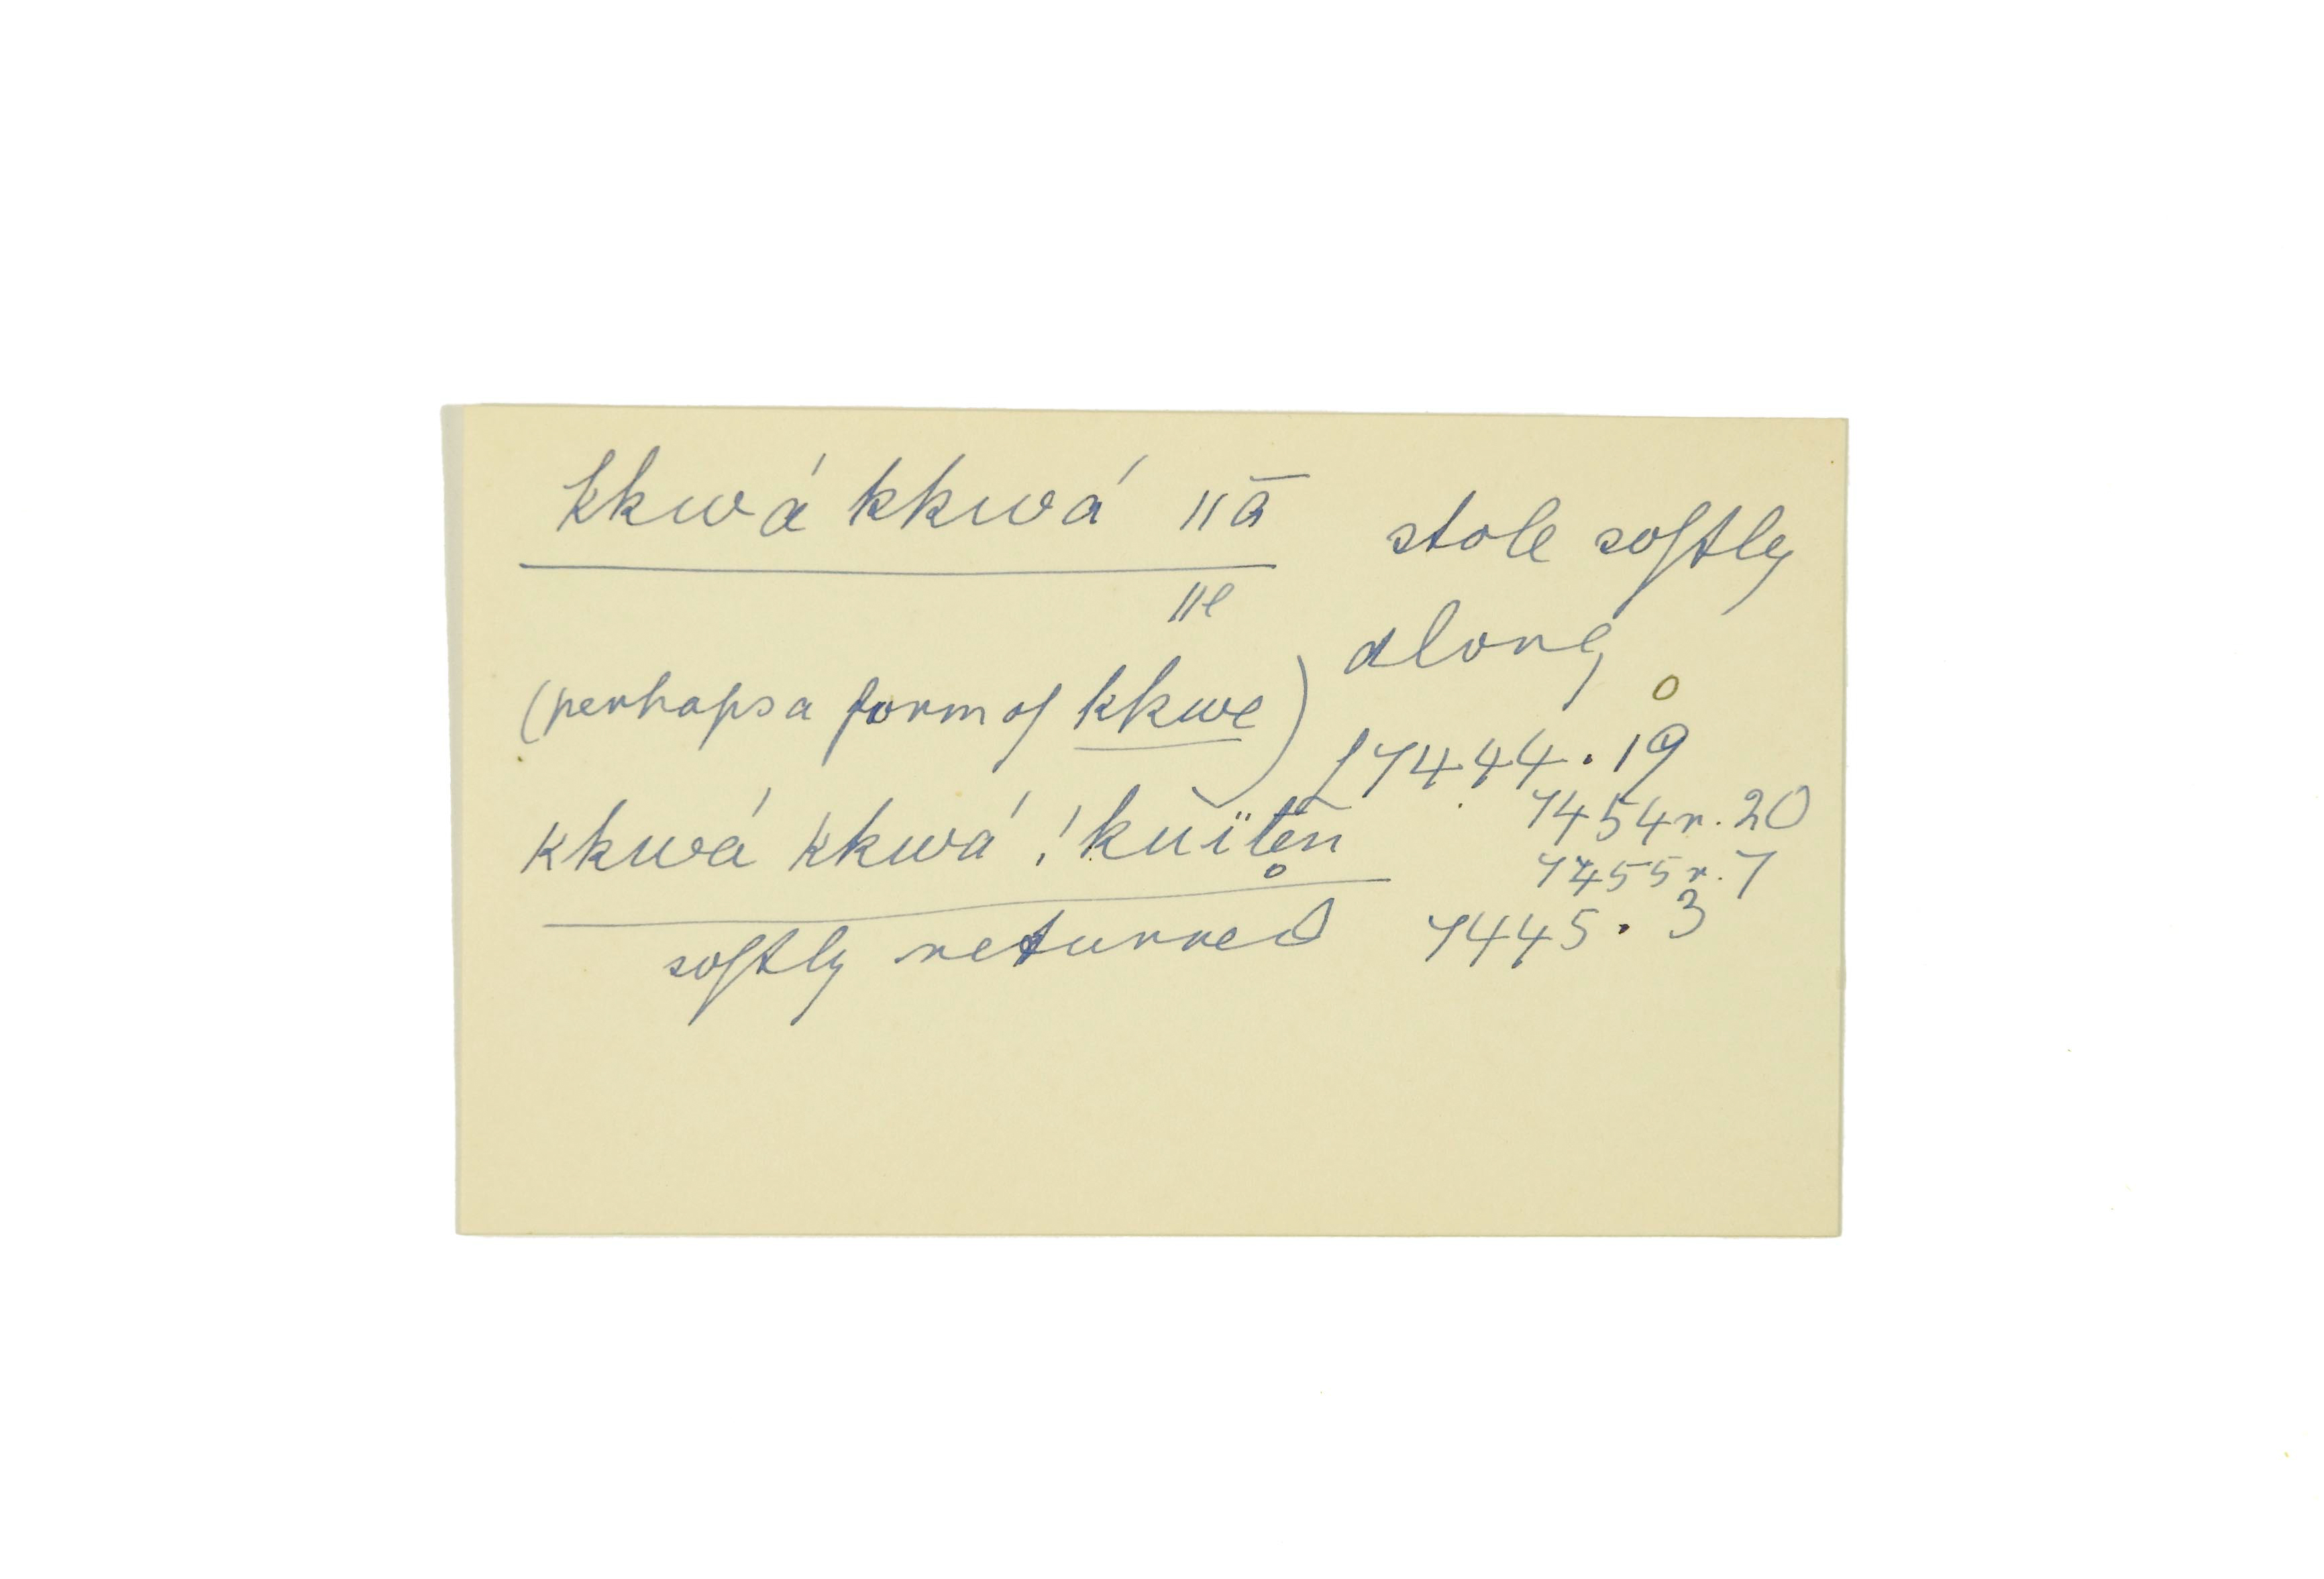 kkwá kkwá ǁā stole softly
ǁe along
(perhaps a form of kkwe) f 7444.19
kkwá kkwá !kuïten 7454r.20
7455r.7
softly returned 7445.3